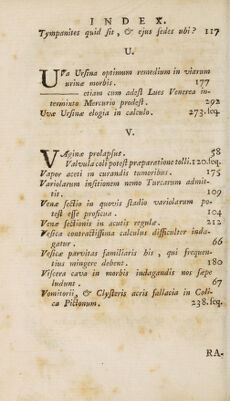 INDEX.
Tympanites quid sit, & ejus sedes ubi? 117
U.
Uva Ursina optimum remedium in viarum
urinæ morbis. 177
— etiam cum adest Lues Venerea in-
termixto Mercurio prodest. 292
Uvæ Ursinæ elogia in calculo. 273. seq.
V.
VAginæ prolapsus. 58
Valvula coli potest præparatione tolli. 120. seq.
Vapor aceti in curandis tumoribus. 175
Variolarum insitionem nemo Turcarum admit-
tit. 109
Venæ sectio in quovis stadio variolarum po-
test esse proficua. 104
Venæ sectionis in acutis regulæ. 212
Vesica contractissima calculus difficulter inda-
gatur. 66
Vesicæ parvitas familiaris his, qui frequen-
tius mingere debent. 180
Viscera cava in morbis indagandis nos sæpe
ludunt. 67
Vomitorii, & Clysteris acris fallacia in Coli-
ca Pictonum. 238. seq.
RA-